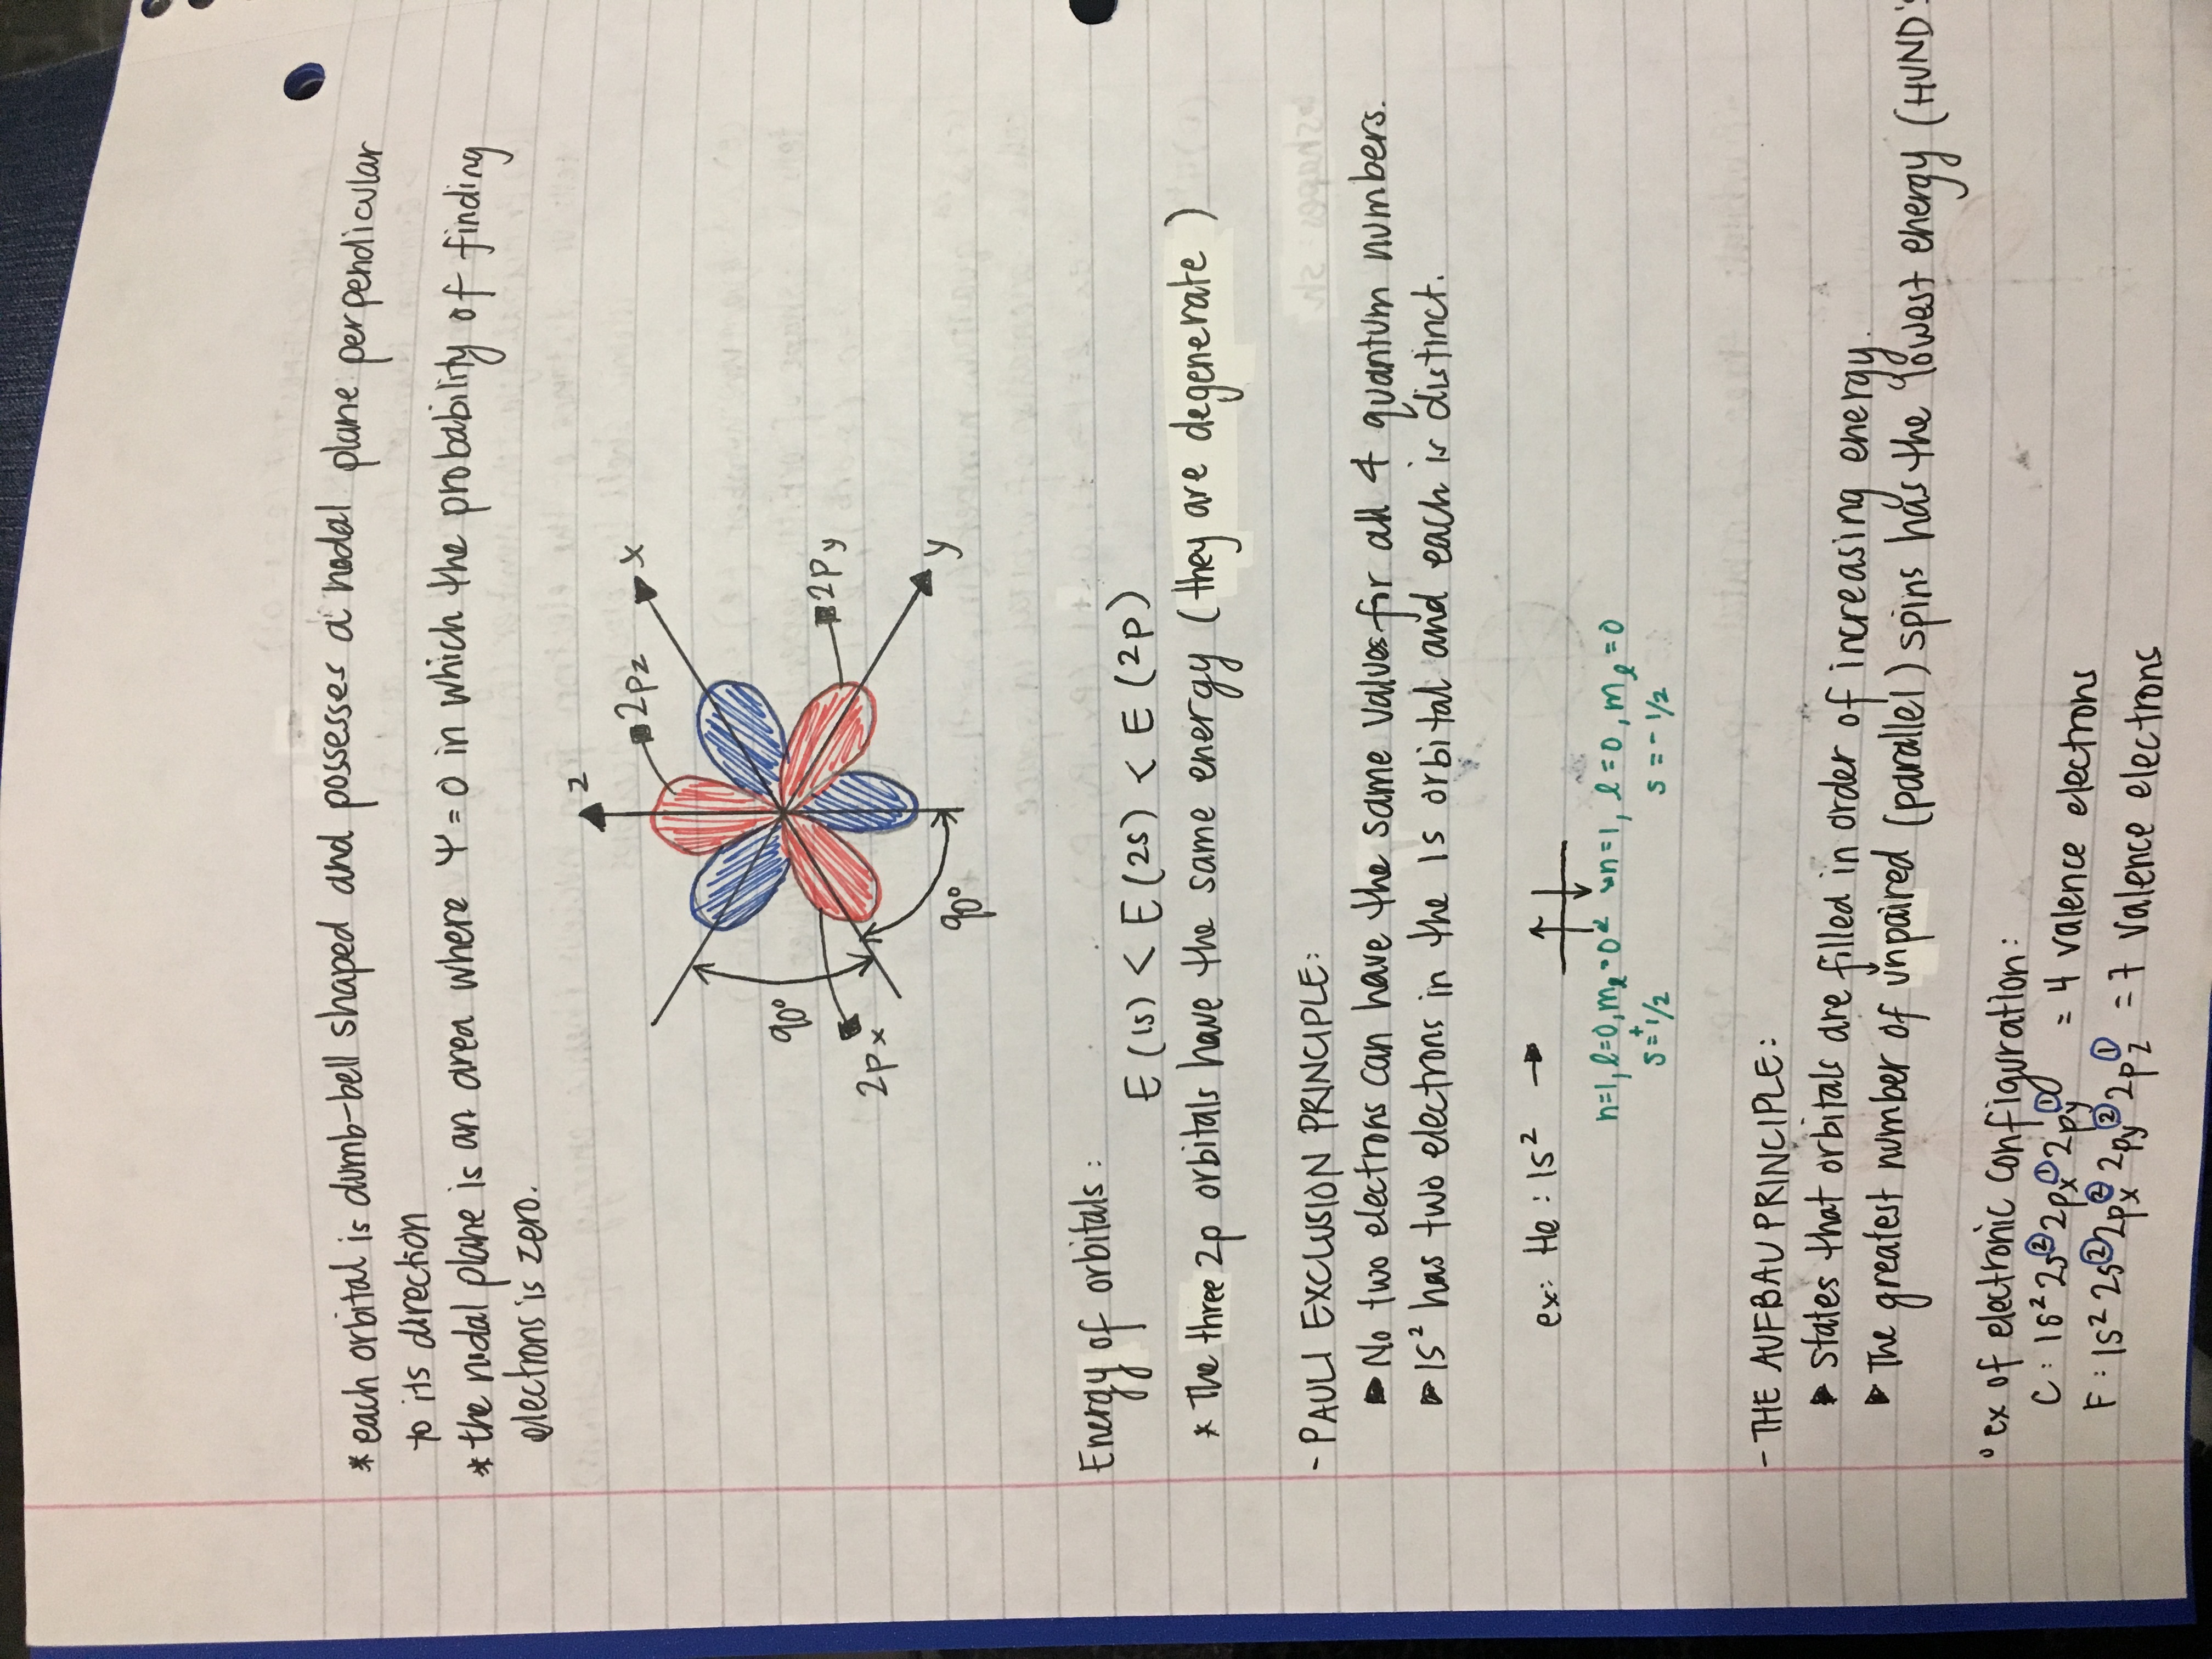 * each orbital is dumb-bell shaped and possesses a nodal plane perpendicular
to its direction
* the nodal plane is an area where Ψ = 0 in which the probability of finding
electrons is zero.
z
x
2pz
2py
y
90°
90°
2px
Energy of orbitals:
E (1s) < E (2s) < E (2p)
* The three 2p orbitals have the same energy (they are degenerate)
- PAULI EXCLUSION PRINCIPLE:
▶ No two electrons can have the same values for all 4 quantum numbers.
▶ 1s² has two electrons in the 1s orbital and each is distinct.
ex: He : 1s² →
n=1, l=0, mₗ=0 n=1, l=0, mₗ=0
s=+1/2 s=-1/2
- THE AUFBAU PRINCIPLE:
▶ States that orbitals are filled in order of increasing energy.
▶ The greatest number of unpaired (parallel) spins has the lowest energy (HUND'S
° ex of electronic configuration:
C : 1s² 2s² 2px¹ 2py¹ = 4 valence electrons
F : 1s² 2s² 2px² 2py² 2pz¹ = 7 valence electrons